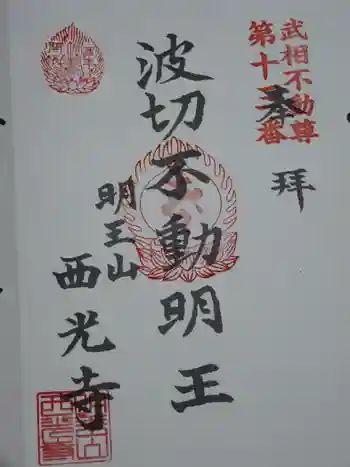 武相不動尊
第十三番
奉拝
波切不動明王
明王山
西光寺